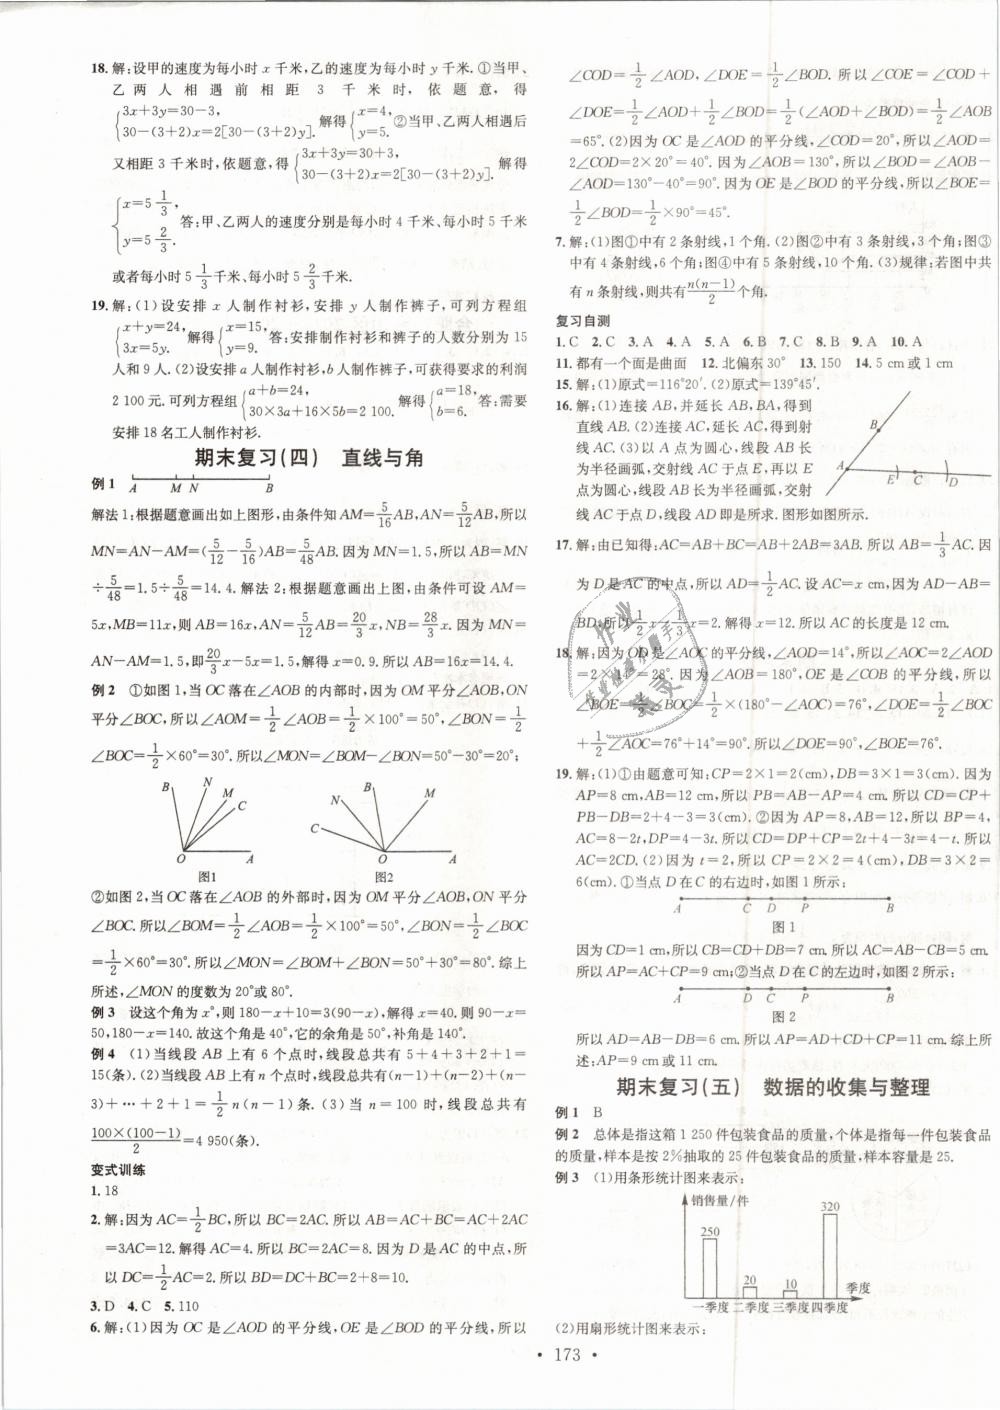 18. 解:设甲的速度为每小时 x 千米,乙的速度为每小时 y 千米. ①当甲、
乙两人相遇前相距 3 千米时,依题意,得
{3x+3y=30-3, 30-(3+2)x=2[30-(3+2)y]. 解得{x=4, y=5. ②当甲、乙两人相遇后
又相距 3 千米时,依题意,得{3x+3y=30+3, 30-(3+2)x=2[30-(3+2)y]. 解得
{x=5 1/3, y=5 2/3. 答:甲、乙两人的速度分别是每小时 4 千米、每小时 5 千米
或者每小时 5 1/3 千米、每小时 5 2/3 千米.
19. 解:(1)设安排 x 人制作衬衫,安排 y 人制作裤子,可列方程组
{x+y=24, 3x=5y. 解得{x=15, y=9. 答:安排制作衬衫和裤子的人数分别为 15
人和 9 人. (2)设安排 a 人制作衬衫,b 人制作裤子,可获得要求的利润
2 100 元. 可列方程组{a+b=24, 30×3a+16×5b=2 100. 解得{a=18, b=6. 答:需要
安排 18 名工人制作衬衫.
期末复习(四) 直线与角
例 1 A M N B
解法 1:根据题意画出如上图形,由条件知 AM=5/16AB,AN=5/12AB,所以
MN=AN-AM=(5/12-5/16)AB=5/48AB. 因为 MN=1.5,所以 AB=MN
÷5/48=1.5÷5/48=14.4. 解法 2:根据题意画出上图,由条件可设 AM=
5x,MB=11x,则 AB=16x,AN=5/12AB=20/3x,NB=28/3x. 因为 MN=
AN-AM=1.5,即20/3x-5x=1.5,解得 x=0.9. 所以 AB=16x=14.4.
例 2 ①如图 1,当 OC 落在∠AOB 的内部时,因为 OM 平分∠AOB,ON
平分∠BOC,所以∠AOM=1/2∠AOB=1/2×100°=50°,∠BON=1/2
∠BOC=1/2×60°=30°. 所以∠MON=∠BOM-∠BON=50°-30°=20°;
B N M C O A
图1
B M N C O A
图2
②如图 2,当 OC 落在∠AOB 的外部时,因为 OM 平分∠AOB,ON 平分
∠BOC. 所以∠BOM=1/2∠AOB=1/2×100°=50°,∠BON=1/2∠BOC=
1/2×60°=30°. 所以∠MON=∠BOM+∠BON=50°+30°=80°. 综上
所述,∠MON 的度数为 20°或 80°.
例 3 设这个角为 x°,则 180-x+10=3(90-x),解得 x=40. 则 90-x=
50,180-x=140. 故这个角是 40°,它的余角是 50°,补角是 140°.
例 4 (1)当线段 AB 上有 6 个点时,线段总共有 5+4+3+2+1=
15(条). (2)当线段 AB 上有 n 个点时,线段总共有(n-1)+(n-2)+(n-
3)+…+2+1=1/2n(n-1)条. (3)当 n=100 时,线段总共有
100×(100-1)/2=4 950(条).
变式训练
1. 18
2. 解:因为 AC=1/2BC,所以 BC=2AC. 所以 AB=AC+BC=AC+2AC
=3AC=12. 解得 AC=4. 所以 BC=2AC=8. 因为 D 是 AC 的中点,所
以 DC=1/2AC=2. 所以 BD=DC+BC=2+8=10.
3. D 4. C 5. 110
6. 解:(1)因为 OC 是∠AOD 的平分线,OE 是∠BOD 的平分线,所以
∠COD=1/2∠AOD,∠DOE=1/2∠BOD. 所以∠COE=∠COD+
∠DOE=1/2∠AOD+1/2∠BOD=1/2(∠AOD+∠BOD)=1/2∠AOB
=65°. (2)因为 OC 是∠AOD 的平分线,∠COD=20°,所以∠AOD=
2∠COD=2×20°=40°. 因为∠AOB=130°,所以∠BOD=∠AOB-
∠AOD=130°-40°=90°. 因为 OE 是∠BOD 的平分线,所以∠BOE=
1/2∠BOD=1/2×90°=45°.
7. 解:(1)图①中有 2 条射线,1 个角. (2)图②中有 3 条射线,3 个角;图③
中有 4 条射线,6 个角;图④中有 5 条射线,10 个角. (3)规律:若图中共
有 n 条射线,则共有n(n-1)/2个角.
复习自测
1. C 2. C 3. A 4. A 5. A 6. B 7. C 8. B 9. A 10. A
11. 都有一个面是曲面 12. 北偏东 30° 13. 150 14. 5 cm 或 1 cm
15. 解:(1)原式=116°20′. (2)原式=139°45′.
16. 解:(1)连接 AB,并延长 AB,BA,得到
直线 AB. (2)连接 AC,延长 AC,得到射
线 AC. (3)以 A 点为圆心,线段 AB 长
为半径画弧,交射线 AC 于点 E,再以 E
点为圆心,线段 AB 长为半径画弧,交射
线 AC 于点 D,线段 AD 即是所求. 图形如图所示.
B A E C D
17. 解:由已知得:AC=AB+BC=AB+2AB=3AB. 所以 AB=1/3AC. 因
为 D 是 AC 的中点,所以 AD=1/2AC. 设 AC=x cm,因为 AD-AB=
BD,所以1/2x-1/3x=2. 解得 x=12. 所以 AC 的长度是 12 cm.
18. 解:因为 OD 是∠AOC 的平分线,∠AOD=14°,所以∠AOC=2∠AOD
=2×14°=28°. 因为∠AOB=180°,OE 是∠COB 的平分线,所以
∠BOE=1/2∠BOC=1/2×(180°-∠AOC)=76°. ∠DOE=1/2∠BOC
+1/2∠AOC=76°+14°=90°. 所以∠DOE=90°,∠BOE=76°.
19. 解:(1)①由题意可知:CP=2×1=2(cm),DB=3×1=3(cm). 因为
AP=8 cm,AB=12 cm,所以 PB=AB-AP=4 cm. 所以 CD=CP+
PB-DB=2+4-3=3(cm). ②因为 AP=8,AB=12,所以 BP=4,
AC=8-2t,DP=4-3t. 所以 CD=DP+CP=2t+4-3t=4-t. 所以
AC=2CD. (2)因为 t=2,所以 CP=2×2=4(cm),DB=3×2=
6(cm). ①当点 D 在 C 的右边时,如图 1 所示:
A C D P B
图 1
因为 CD=1 cm,所以 CB=CD+DB=7 cm. 所以 AC=AB-CB=5 cm.
所以 AP=AC+CP=9 cm;②当点 D 在 C 的左边时,如图 2 所示:
A D C P B
图 2
所以 AD=AB-DB=6 cm. 所以 AP=AD+CD+CP=11 cm. 综上所
述:AP=9 cm 或 11 cm.
期末复习(五) 数据的收集与整理
例 1 B
例 2 总体是指这箱 1 250 件包装食品的质量,个体是指每一件包装食品
的质量,样本是按 2%抽取的 25 件包装食品的质量,样本容量是 25.
例 3 (1)用条形统计图来表示:
销售量/件
250 20 10 320
季度
一季度 二季度 三季度 四季度
(2)用扇形统计图来表示:
· 173 ·